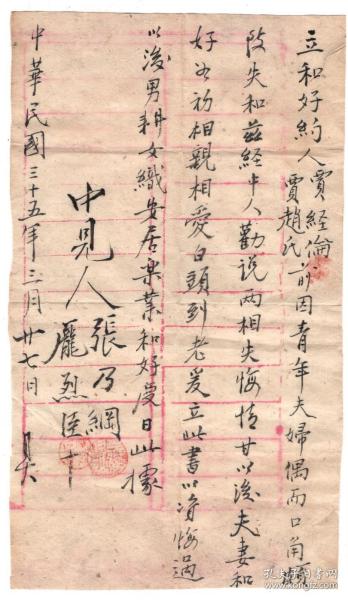 立和好約人賈經倫
賈趙氏前因青年夫婦偶而口角
致失和茲経中人勸说两相失悔情甘以後夫妻和
好如初相親相愛白頭到老爰立此書以資悔過
以後男耕女織安居楽業和好度日此據
中見人張乃綱
龐烈臣十
中華民國三十五年三月廿七日 具